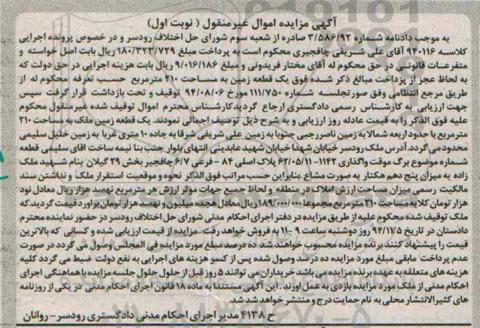 آگهی مزایده اموال غیرمنقول ( نوبت اول)
به موجب دادنامه شماره ۳/۵۸۶/۹۲ صادره از شعبه سوم شورای حل اختلاف رودسر و در خصوص پرونده اجرایی
کلاسه ۹۴۰۱۱۶ آقای علی شریفی چافجیری محکوم است به پرداخت مبلغ ۱۸۰/۳۲۳/۷۲۹ ریال بابت اصل خواسته و
متفرعات قانونی در حق محکوم له آقای مختار فریدونی و مبلغ ۹/۰۱۶/۱۸۶ ریال بابت هزینه اجرایی در حق دولت که
به لحاظ عجز از پرداخت مبالغ ذکر شده فوق یک قطعه زمین به مساحت ۲۱۰ مترمربع حسب تعرفه محکوم له از
طریق مرجع انتظامی وفق صورتجلسه شماره ۱۱۱/۷۵۰ مورخ ۹۴/۰۸/۰۶ توقیف و تحت بازداشت قرار گرفت سپس
جهت ارزیابی به کارشناس رسمی دادگستری ارجاع گردید.کارشناس محترم اموال توقیف شده غیرمنقول محکوم
علیه فوق الذکر را به قیمت عادله روز ارزیابی و به شرح ذیل توصیف اجمالی نمودند. یک قطعه زمین ملک به مساحت ۲۱۰
مترمربع با حدود اربعه شمالا به زمین ناصر رجبی جنوبا به زمین علی شریفی شرقا به جاده ۱۰ متری غربا به زمین خلیل سلیمی
محدود می گردد. آدرس ملک رودسر خیابان شهدا خیابان شهید عابدینی انتهای بلوار جنب بنا نیمه ساخت آقای سلیمی قطعه
شماره موضوع برگ موقت واگذاری ۱۱۴۲-۶۲/۰۵/۱۱ پلاک اصلی ۸۴ - فرعی ۶/۷ چافجیر بخش ۲۹ گیلان بنام شهید ملک
زاده به میزان پنج دهم هکتار به صورت مشاع بنابراین حسب مراتب فوق الذکر نحوه و موقعیت استقرار ملک و نداشتن سند
مالکیت رسمی میزان مساحت ارزش املاک در منطقه و لحاظ جمیع جهات موثر ارزش هر مترمربع نهصد هزار ریال معادل نود
هزار تومان کلا به مساحت ۲۱۰ مترمربع مجموعا ۱۸۹/۰۰۰/۰۰۰ ریال معادل هجده میلیون و نهصد هزار تومان برآورد قیمت گردید که
ملک توقیف شده محکوم علیه از طریق مزایده در دفتر اجرای احکام مدنی شورای حل اختلاف رودسر در حضور نماینده محترم
دادستان در تاریخ ۹۴/۱۱/۵ روز دوشنبه ساعت ۹ - ۱۱ به فروش خواهد رفت. مزایده از قیمت ارزیابی شده و کسانی که بالاترین
قیمت را پیشنهاد کنند برنده مزایده محسوب خواهند شد. ده درصد مبلغ مورد مزایده فی المجلس وصول می گردد در صورت
عدم پرداخت مابقی مبلغ مورد مزایده ده درصد وصول شده پس از کسر هزینه های اجرایی به نفع دولت ضبط می گردد کلیه
هزینه های متعلقه به عهده برنده مزایده می باشد خریداران می توانند ۵ روز قبل از حلول جلسه مزایده با هماهنگی اجرای
احکام مدنی از ملک مورد مزایده بازدید به عمل آورند. این آگهی مستندا به ماده ۱۱۸ قانون اجرای احکام مدنی در یکی از روزنامه
های کثیرالانتشار محلی به نام حمایت درج و منتشر خواهد شد.
ح ۴۱۳۸ مدیر اجرای احکام مدنی دادگستری رودسر- روانان